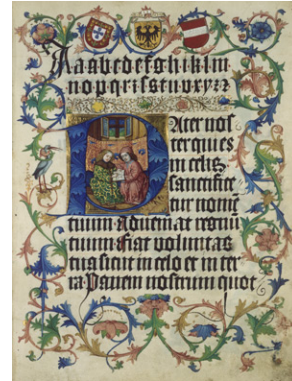 Aaabcdefghiklm
nopqrſstuvxyz
PAter nos
ter qui es
in celis
sanctifice
tur nomē
tuum adueniat regnū
tuum fiat voluntas
tua sicut in celo et in ter
ra Panem nostrum quot